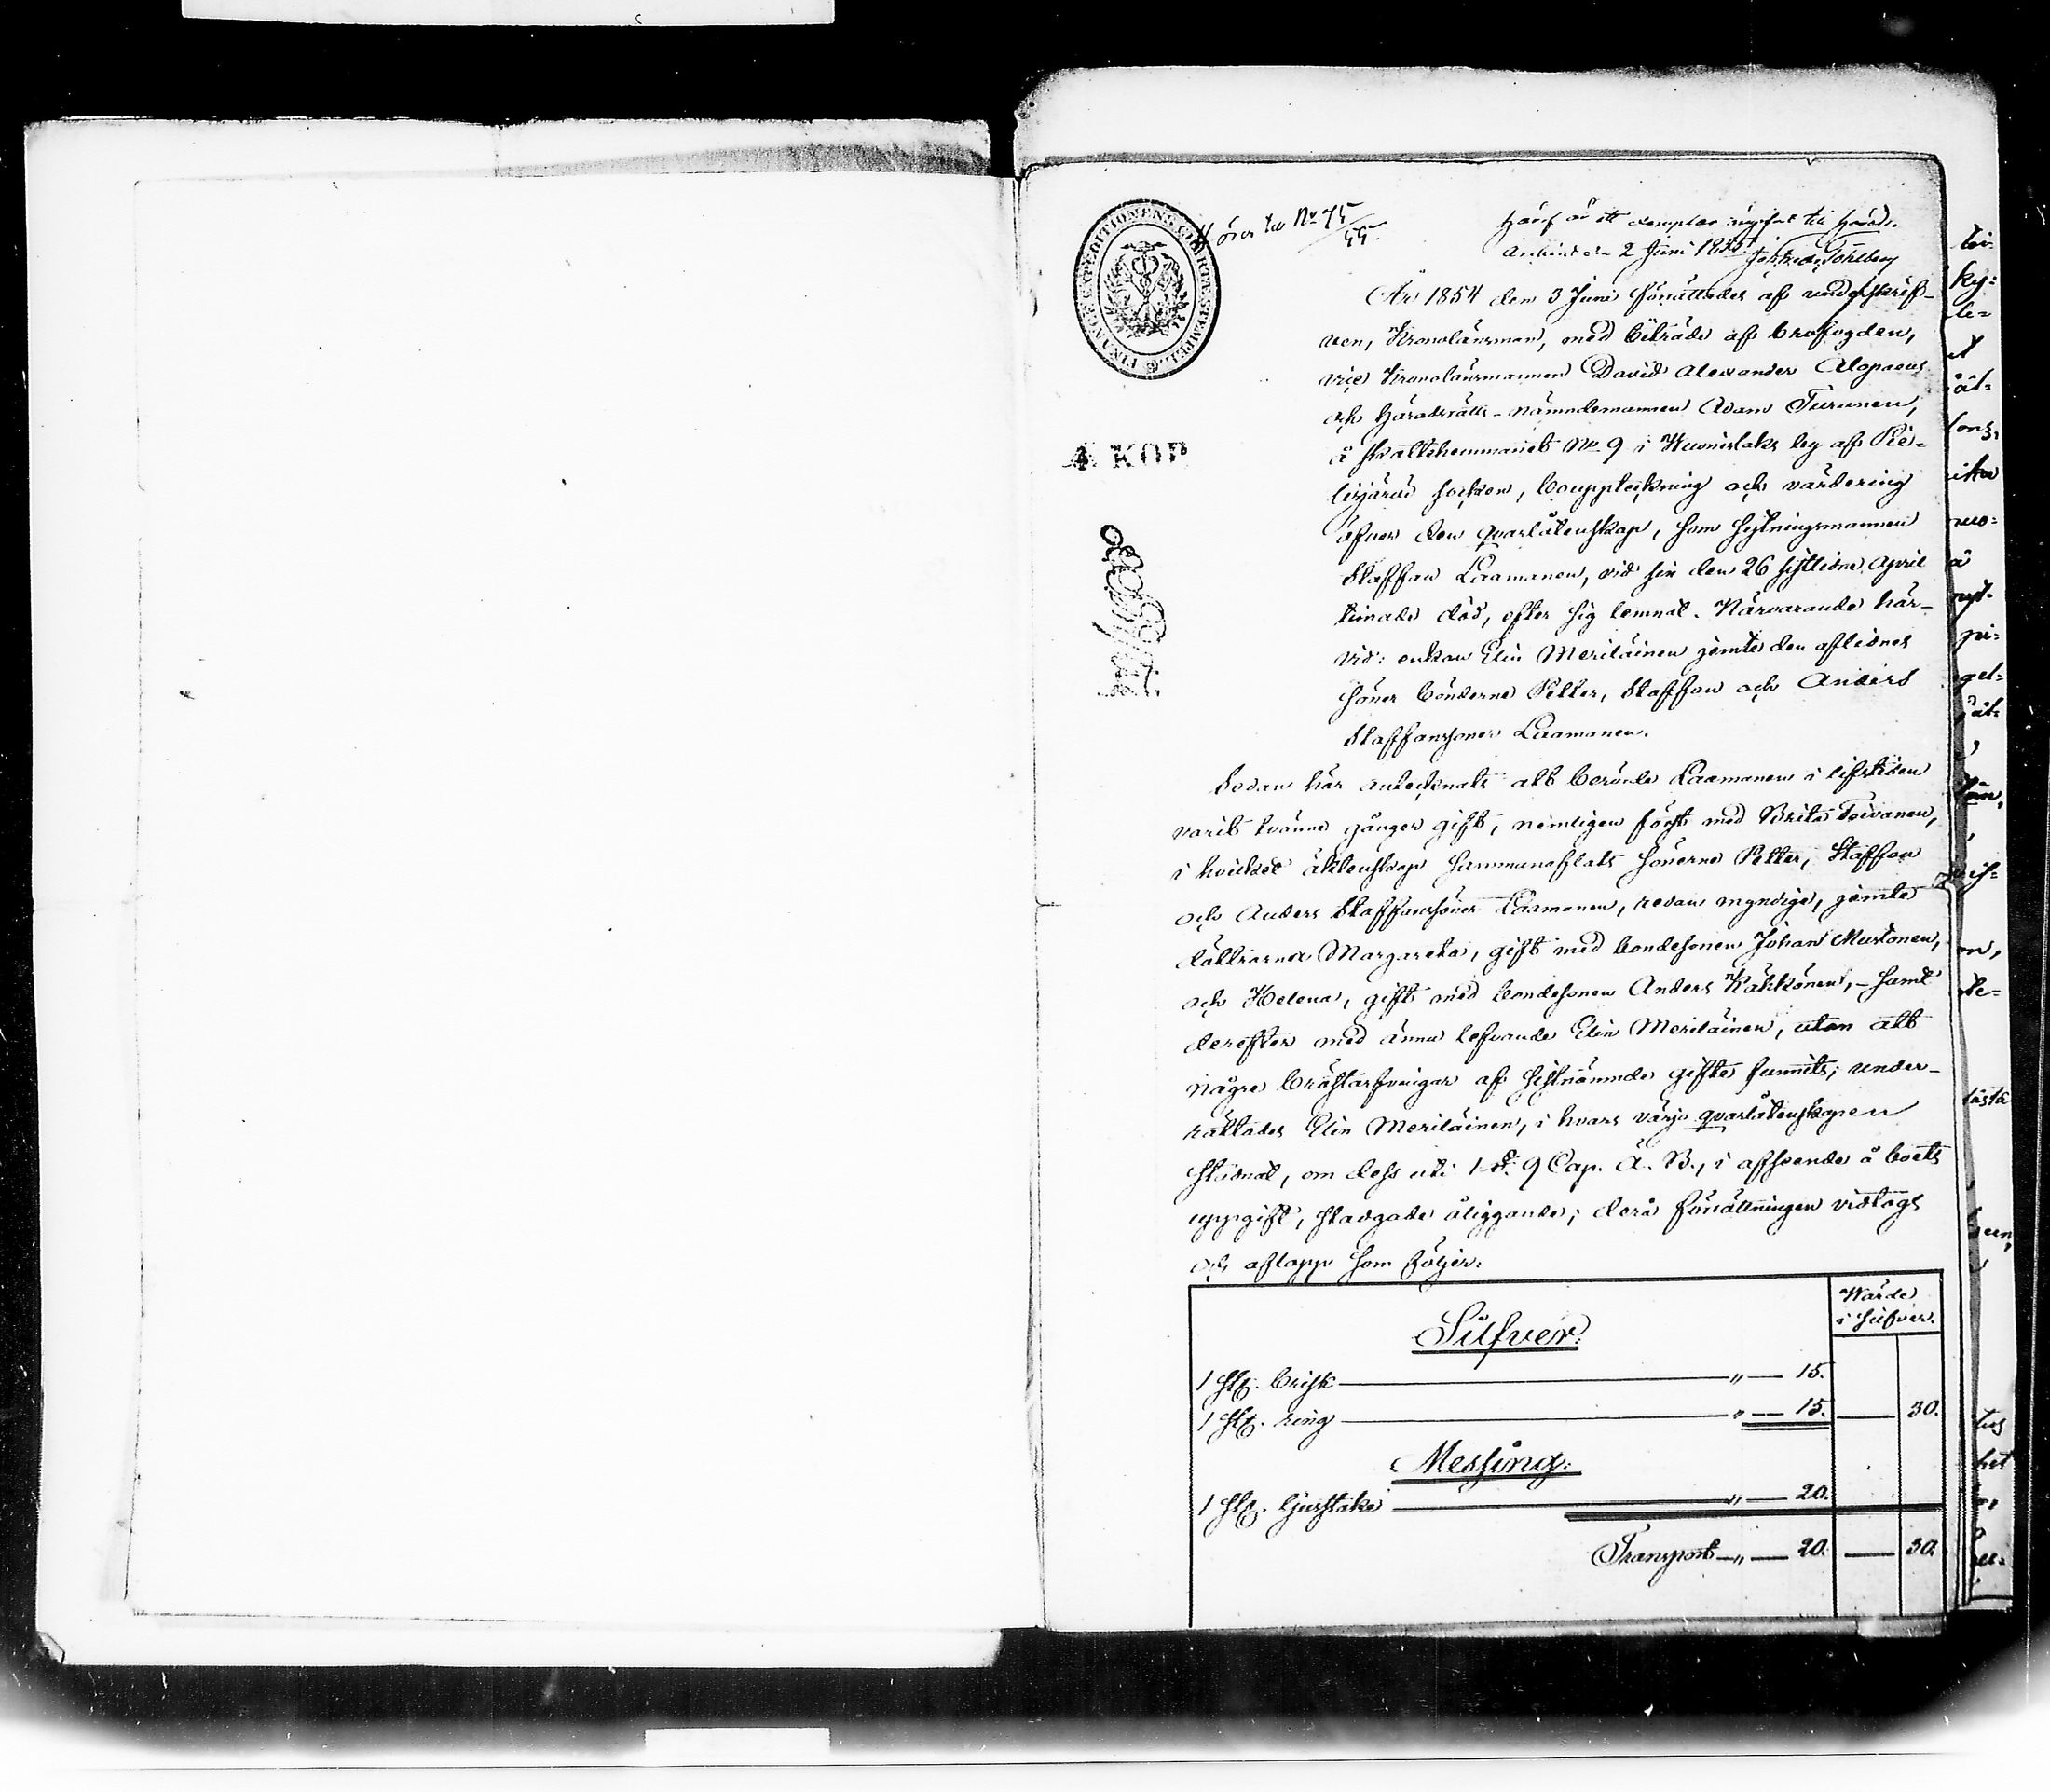 FINANCE EXPEDITIONENS CHARTÆ STEMPEL
4 KOP
No 75/55.
Häraf är ett exemplar ingifvet till Härads-
Archivet den 2 Juni 1855
År 1854 den 3 Juni förrättades af underskrif-
ven, Kronolänsman, med biträde af brofogden,
vice Kronolänsmannen David Alexander Alopaeus
och häradsrätts-nämndemannen Adam Turunen,
å skattehemmanet No 9 i Kuonislaks by af Pie-
lisjärvi socken, bouppteckning och värdering
öfver den qvarlåtenskap, som sytningsmannen
Staffan Laamanen, vid sin den 26 sistlidne April
timade död, efter sig lemnat. Närvarande här-
vid: enkan Elin Meriläinen jemte den aflidnes
söner bönderne Petter, Staffan och Anders
Staffanssöner Laamanen.
Sedan här antecknats att berörde Laamanen i lifstiden
varit tvänne gånger gift, nemligen först med Brita Toivanen,
i hvilket äktenskap sammanaflats sönerne Petter, Staffan
och Anders Staffanssöner Laamanen, redan myndige, jemte
döttrarna Margareta, gift med bondesonen Johan Mustonen,
och Helena, gift med bondesonen Anders Kähkönen, - samt
derefter med ännu lefvande Elin Meriläinen, utan att
några bröstarfvingar af sistnämnde gifte funnits; under-
rättades Elin Meriläinen, i hvars värjo qvarlåtenskapen
stadnat, om dess uti 1 §. 9 Cap. Ä. B., i afseende å boets
uppgift, stadgade åliggande; derå förrättningen vidtogs
och aflopp som följer:
Wärde
i Silfver.
Silfver:
1 st. brisk " 15.
1 st. ring " 15. 30.
Messing:
1 st. ljusstake " 20.
Transport " 20. 30.